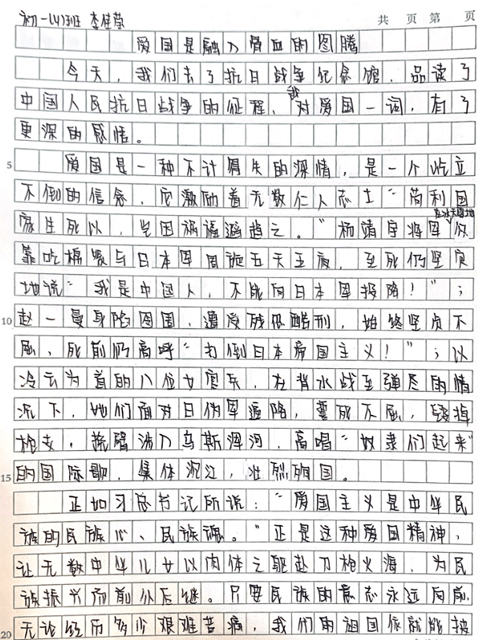 初一(4)班 李佳莹
共 页 第 页
爱国是融入骨血的图腾
今天，我们去了抗日战争纪念馆，品读了
中国人民抗日战争的征程，我对爱国一词，有了
更深的感悟。
5
爱国是一种不计得失的深情，是一个屹立
不倒的信念，它激励着无数仁人志士“苟利国
家生死以，岂因祸福避趋之。”杨靖宇将军仅
靠吃棉絮与日本军周旋五天五夜，至死仍坚定
地说“我是中国人，不能向日本军投降！”；
10
赵一曼身陷囹圄，遭受残忍酷刑，始终坚贞不
屈，死前仍高呼“打倒日本帝国主义！”；以
冷云为首的八位女官兵，在背水战至弹尽的情
况下，她们面对日伪军逼降，宁死不屈，毁掉
枪支，挽臂涉入乌斯浑河，高唱“奴隶们起来”
15
的国际歌，集体沉江，壮烈殉国。
正如习总书记所说：“爱国主义是中华民
族的民族心、民族魂。”正是这种爱国精神，
让无数中华儿女以肉体之躯赴刀枪火海，为民
族振兴而前仆后继。只要民族的意志永远向前，
20
无论经历多少艰难苦痛，我们的祖国依然能接